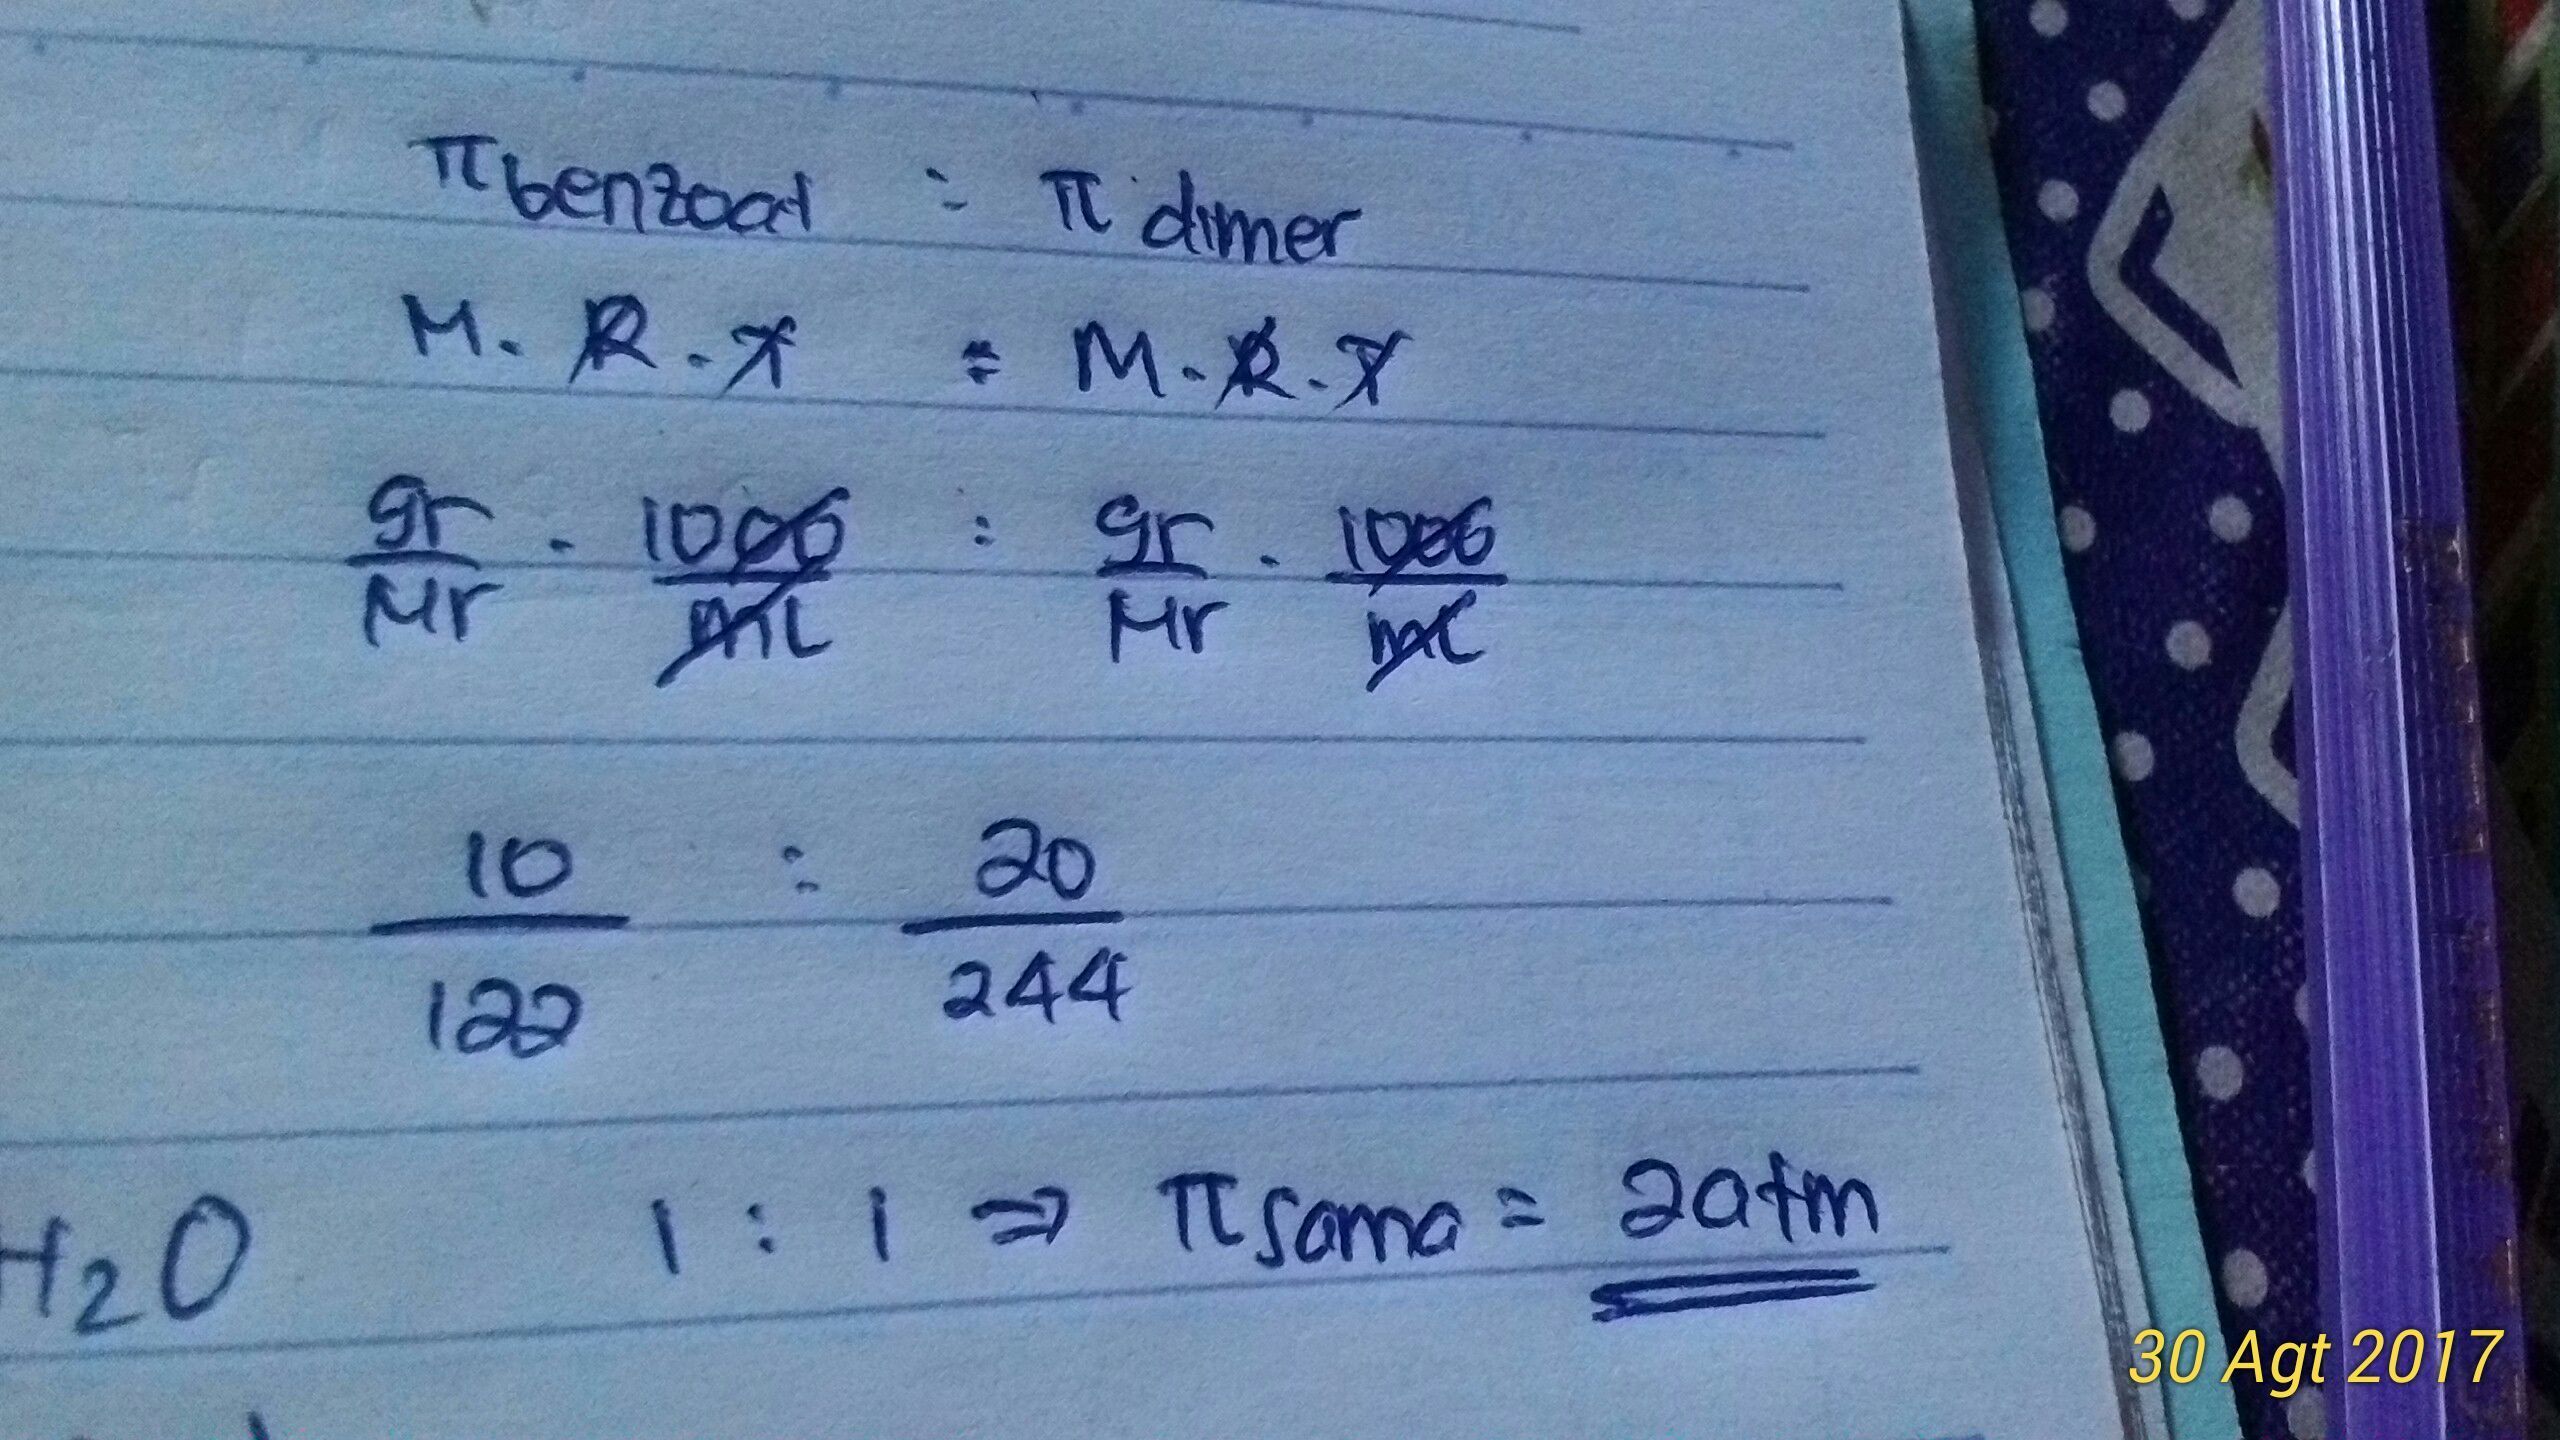 π benzoat : π dimer
M. R. T = M. R. T
gr/Mr . 1000/mL : gr/Mr . 1000/mL
10/122 : 20/244
H₂O 1 : 1 ⇒ π sama = 2 atm
30 Agt 2017